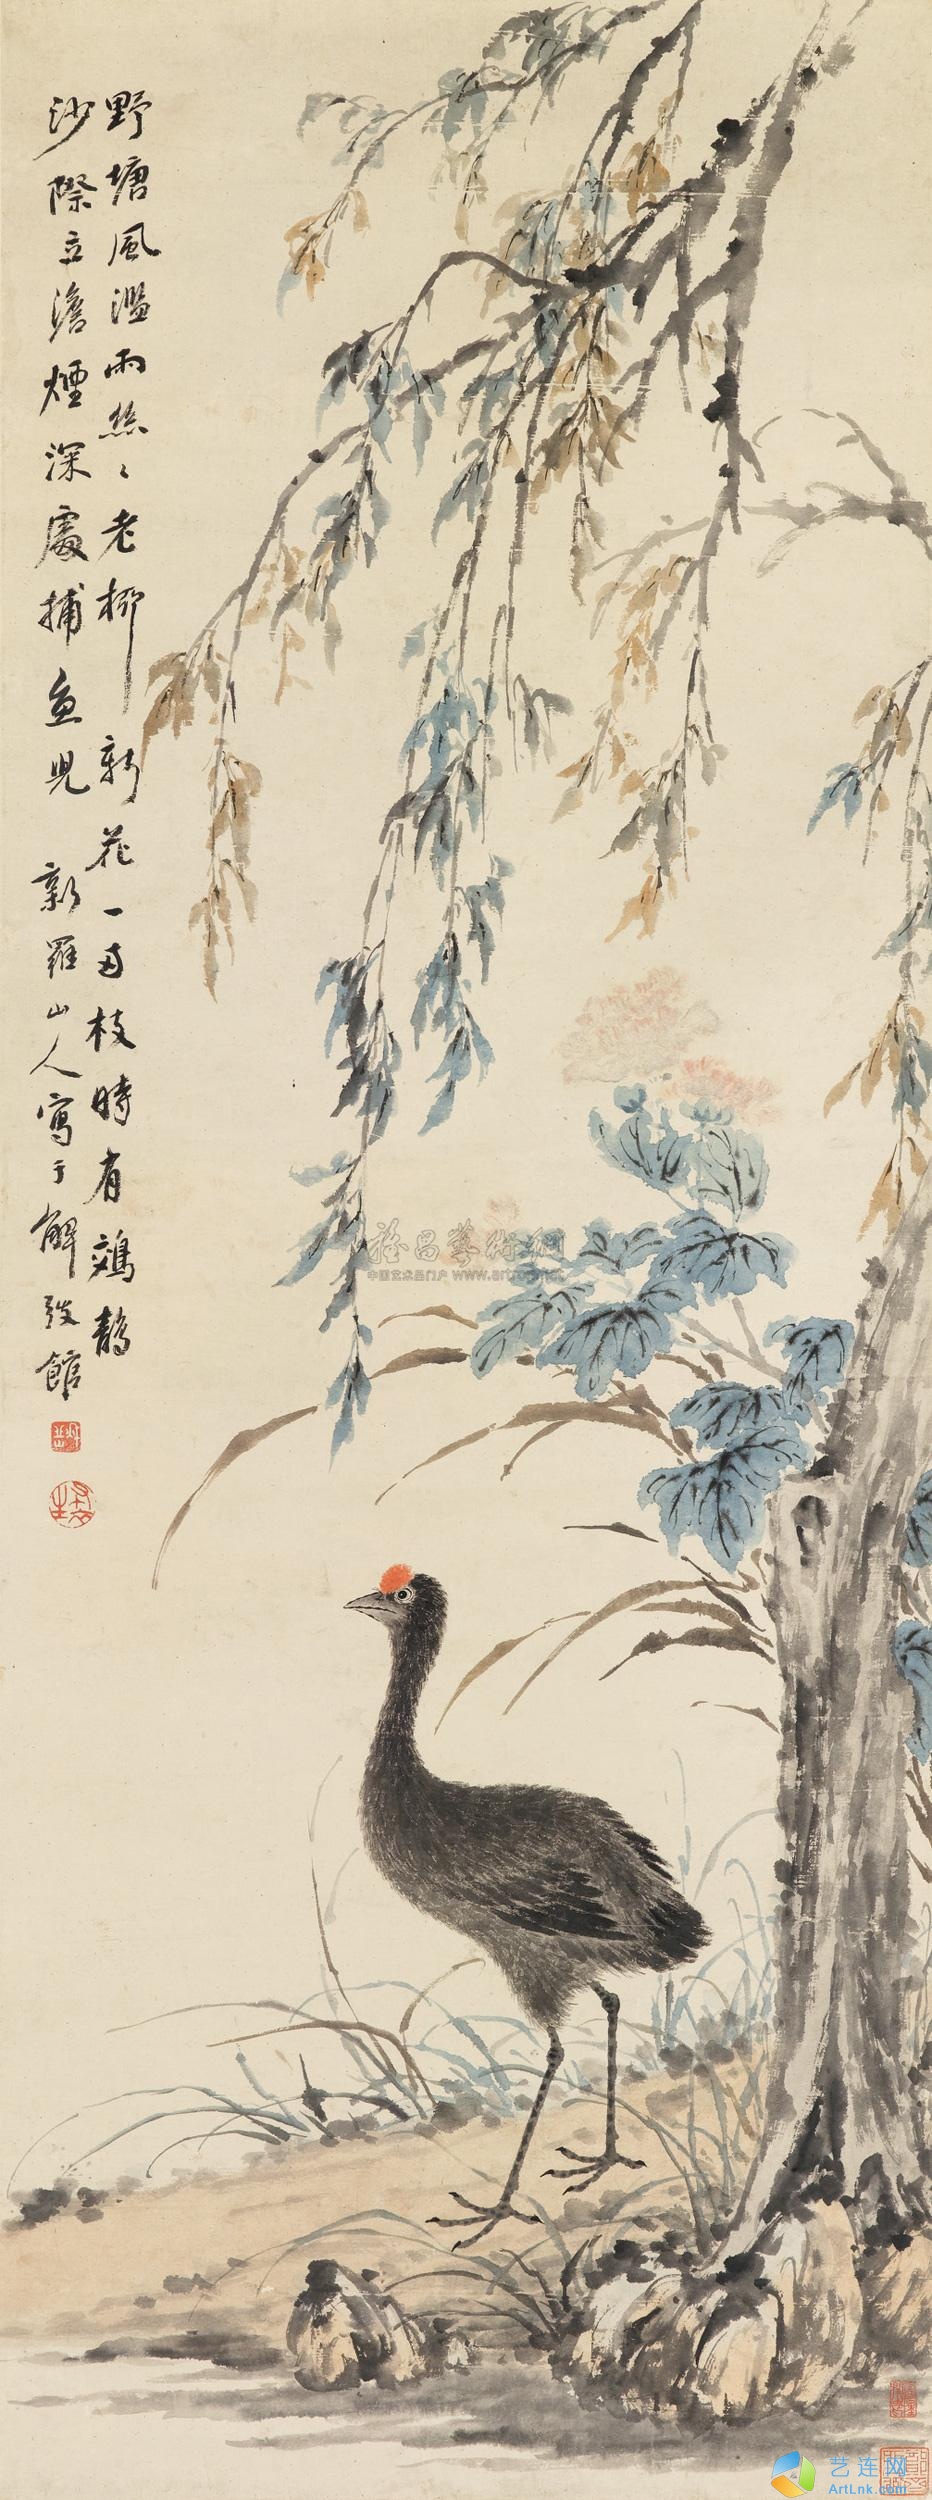 野塘風濕雨絲〻老柳新花一兩枝時有鵁鶄
沙際立澹煙深處捕魚兒 新羅山人寫于解弢館
雅昌藝術網
中国艺术品门户 www.artron.net
艺连网
ArtLnk.com